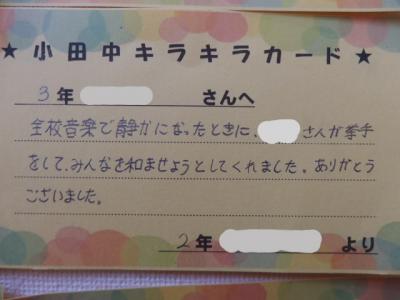 ★小田中キラキラカード★
3年 さんへ
全校音楽で静かになったときに、 さんが挙手
をして、みんなを和ませようとしてくれました。ありがとう
ございました。
2年 より